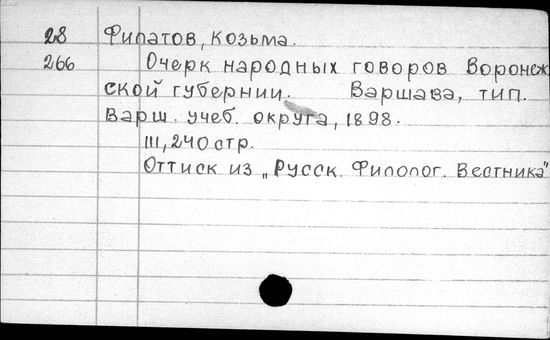 28 Филатов, Козьма.
266 Очерк народных говоров Воронеж
ской губернии. Варшава, тип.
Варш. учеб. округа, 1898.
III, 240 стр.
Оттиск из „Русск. Филолог. Вестника"